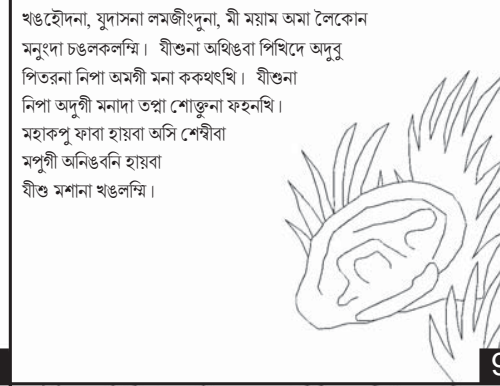 খঙহৌদনা, যুদাসনা লমজীংদুনা, মী ময়াম অমা লৈকোন
মনুংদা চঙলকলম্মি। যীশুনা অথিঙবা পিখিদে অদুবু
পিতরনা নিপা অমগী মনা ককথৎখি। যীশুনা
নিপা অদুগী মনাদা তপ্না শোক্তুনা ফহনখি।
মহাকপু ফাবা হায়বা অসি শেম্বীবা
মপুগী অনিঙবনি হায়বা
যীশু মশানা খঙলম্মি।
9